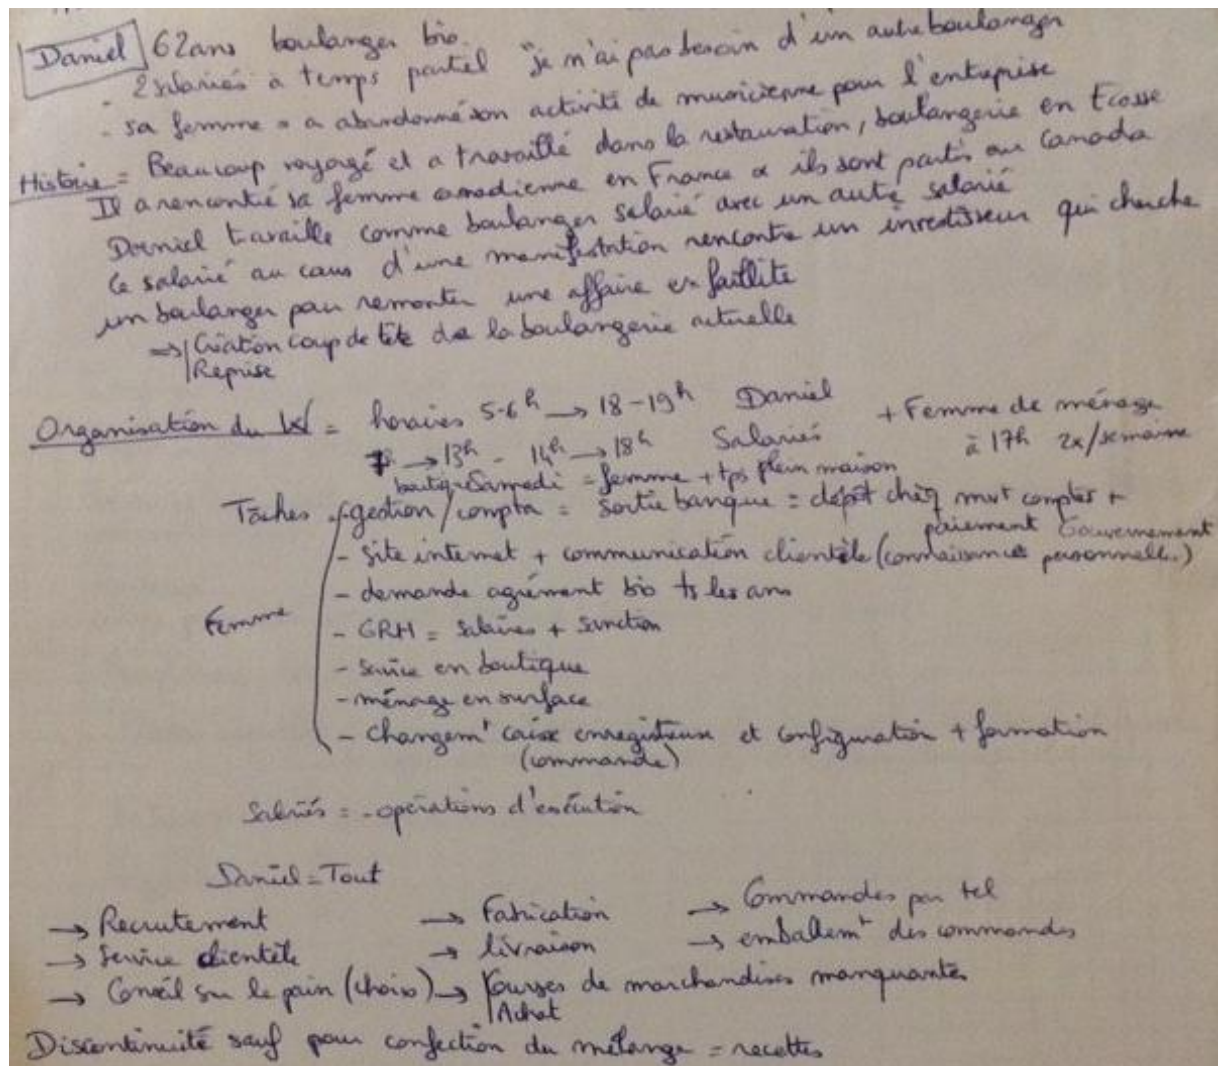 Daniel 62 ans boulanger bio
- 2 salariés à temps partiel "je n'ai pas besoin d'un autre boulanger
- sa femme = a abandonné son activité de musicienne pour l'entreprise
Histoire = Beaucoup voyagé et a travaillé dans la restauration, boulangerie en Ecosse
Il a rencontré sa femme canadienne en France & ils sont partis au Canada
Daniel travaille comme boulanger salarié avec un autre salarié
Ce salarié au cours d'une manifestation rencontre un investisseur qui cherche
un boulanger pour remonter une affaire en faillite
=> Création coup de tête de la boulangerie actuelle
Reprise
Organisation du W = horaires 5-6h → 18-19h Daniel + Femme de ménage
7h → 13h - 14h → 18h Salariés à 17h 2x/semaine
boutique Samedi = femme + tps plein maison
Tâches - gestion/compta = sortie banque = dépôt chèq mvt comptes +
paiement Gouvernement
- site internet + communication clientèle (connaissance personnelle..)
- demande agrément bio ts les ans
Femme - GRH = salaires + sanction
- service en boutique
- ménage en surface
- changemt caisse enregistreuse et configuration + formation
(commande)
Salariés = - opérations d'exécution
Daniel = Tout
→ Recrutement → Fabrication → Commandes par tel
→ Service clientèle → livraison → emballemt des commandes
→ Conseil sur le pain (choix) → Courses de marchandises manquantes
Achat
Discontinuité sauf pour confection du mélange = recettes